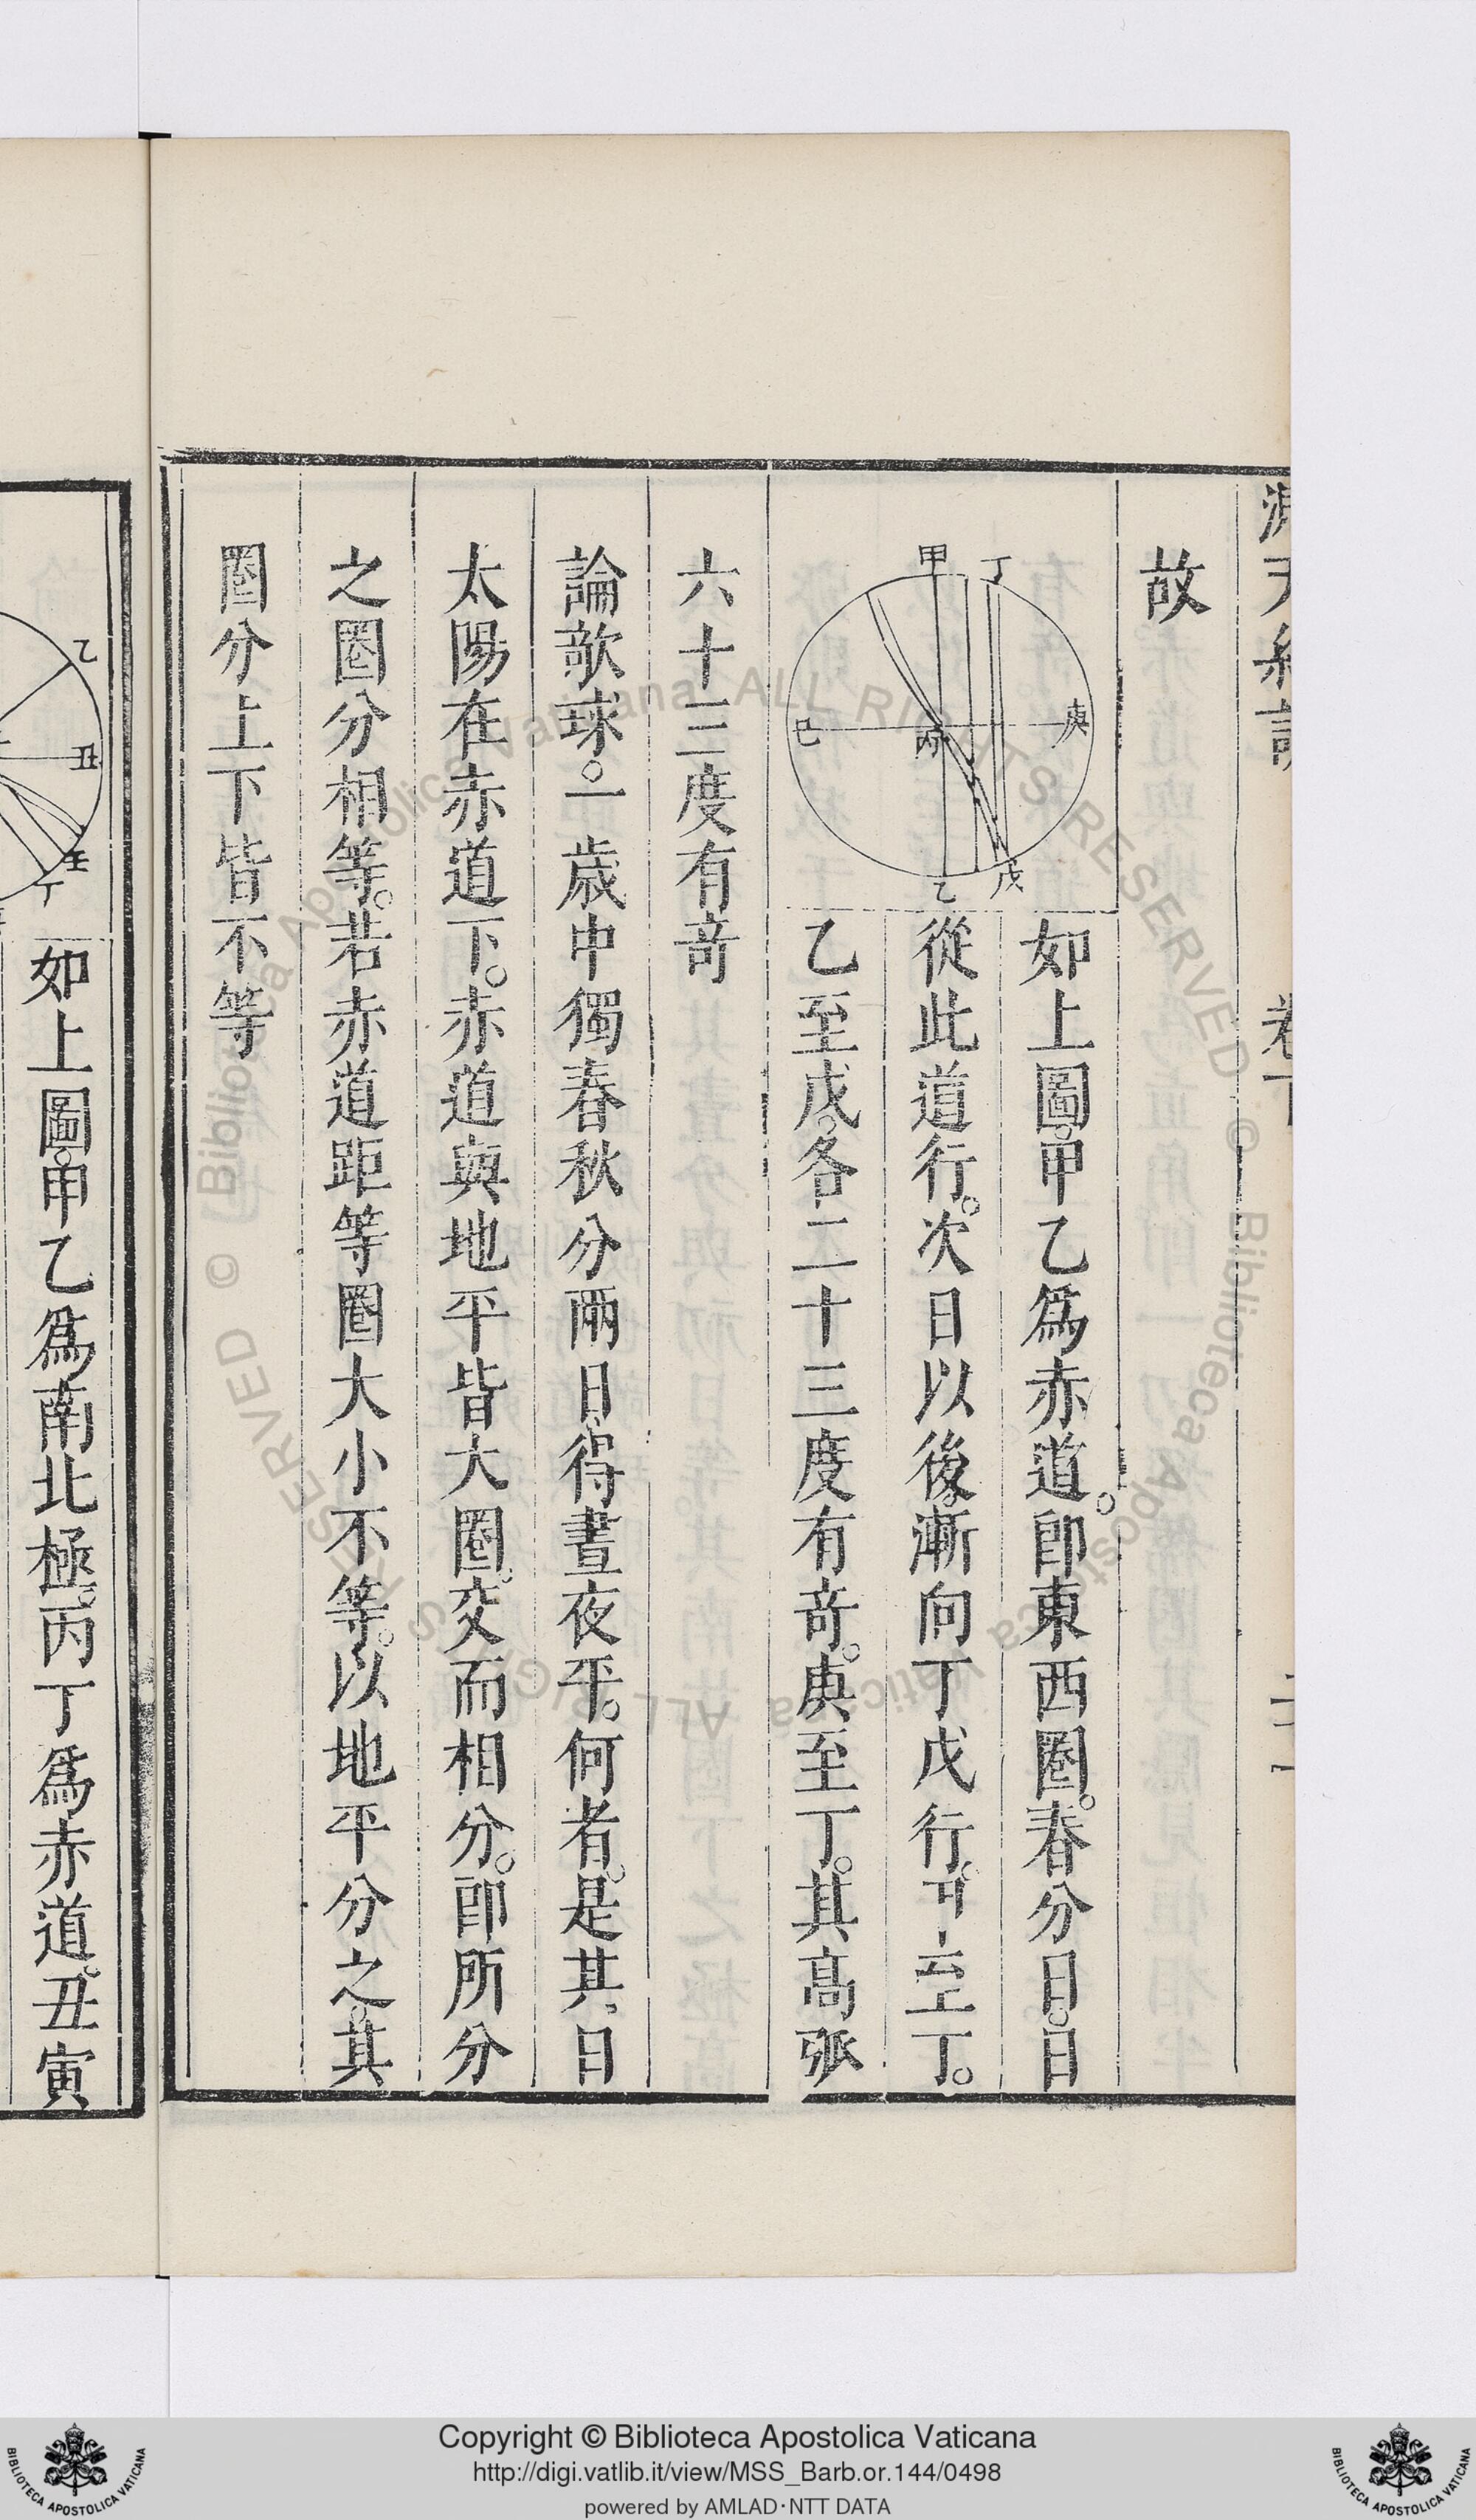 故
甲
丁
庚
丙
己
乙
戊
如上圖甲乙爲赤道。卽東西圈。春分日。日
從此道行。次日以後。漸向丁戊行。甲至丁。
乙至戊。各二十三度有奇。庚至丁。其高弧
六十三度有奇
論欹球。一歲中獨春秋分兩日、得晝夜平。何者。是其日
太陽在赤道下。赤道與地平皆大圈。交而相分。卽所分
之圈分相等。若赤道距等圈大小不等。以地平分之。其
圈分上下皆不等
乙
丑
壬
丁
如上圖。甲乙爲南北極。丙丁爲赤道。丑寅
© Biblioteca Apostolica Vaticana ALL RIGHTS RESERVED © Biblioteca Apostolica Vaticana ALL RIGHTS RESERVED
Copyright © Biblioteca Apostolica Vaticana
http://digi.vatlib.it/view/MSS_Barb.or.144/0498
powered by AMLAD·NTT DATA
BIBLIOTECA APOSTOLICA VATICANA
BIBLIOTECA APOSTOLICA VATICANA